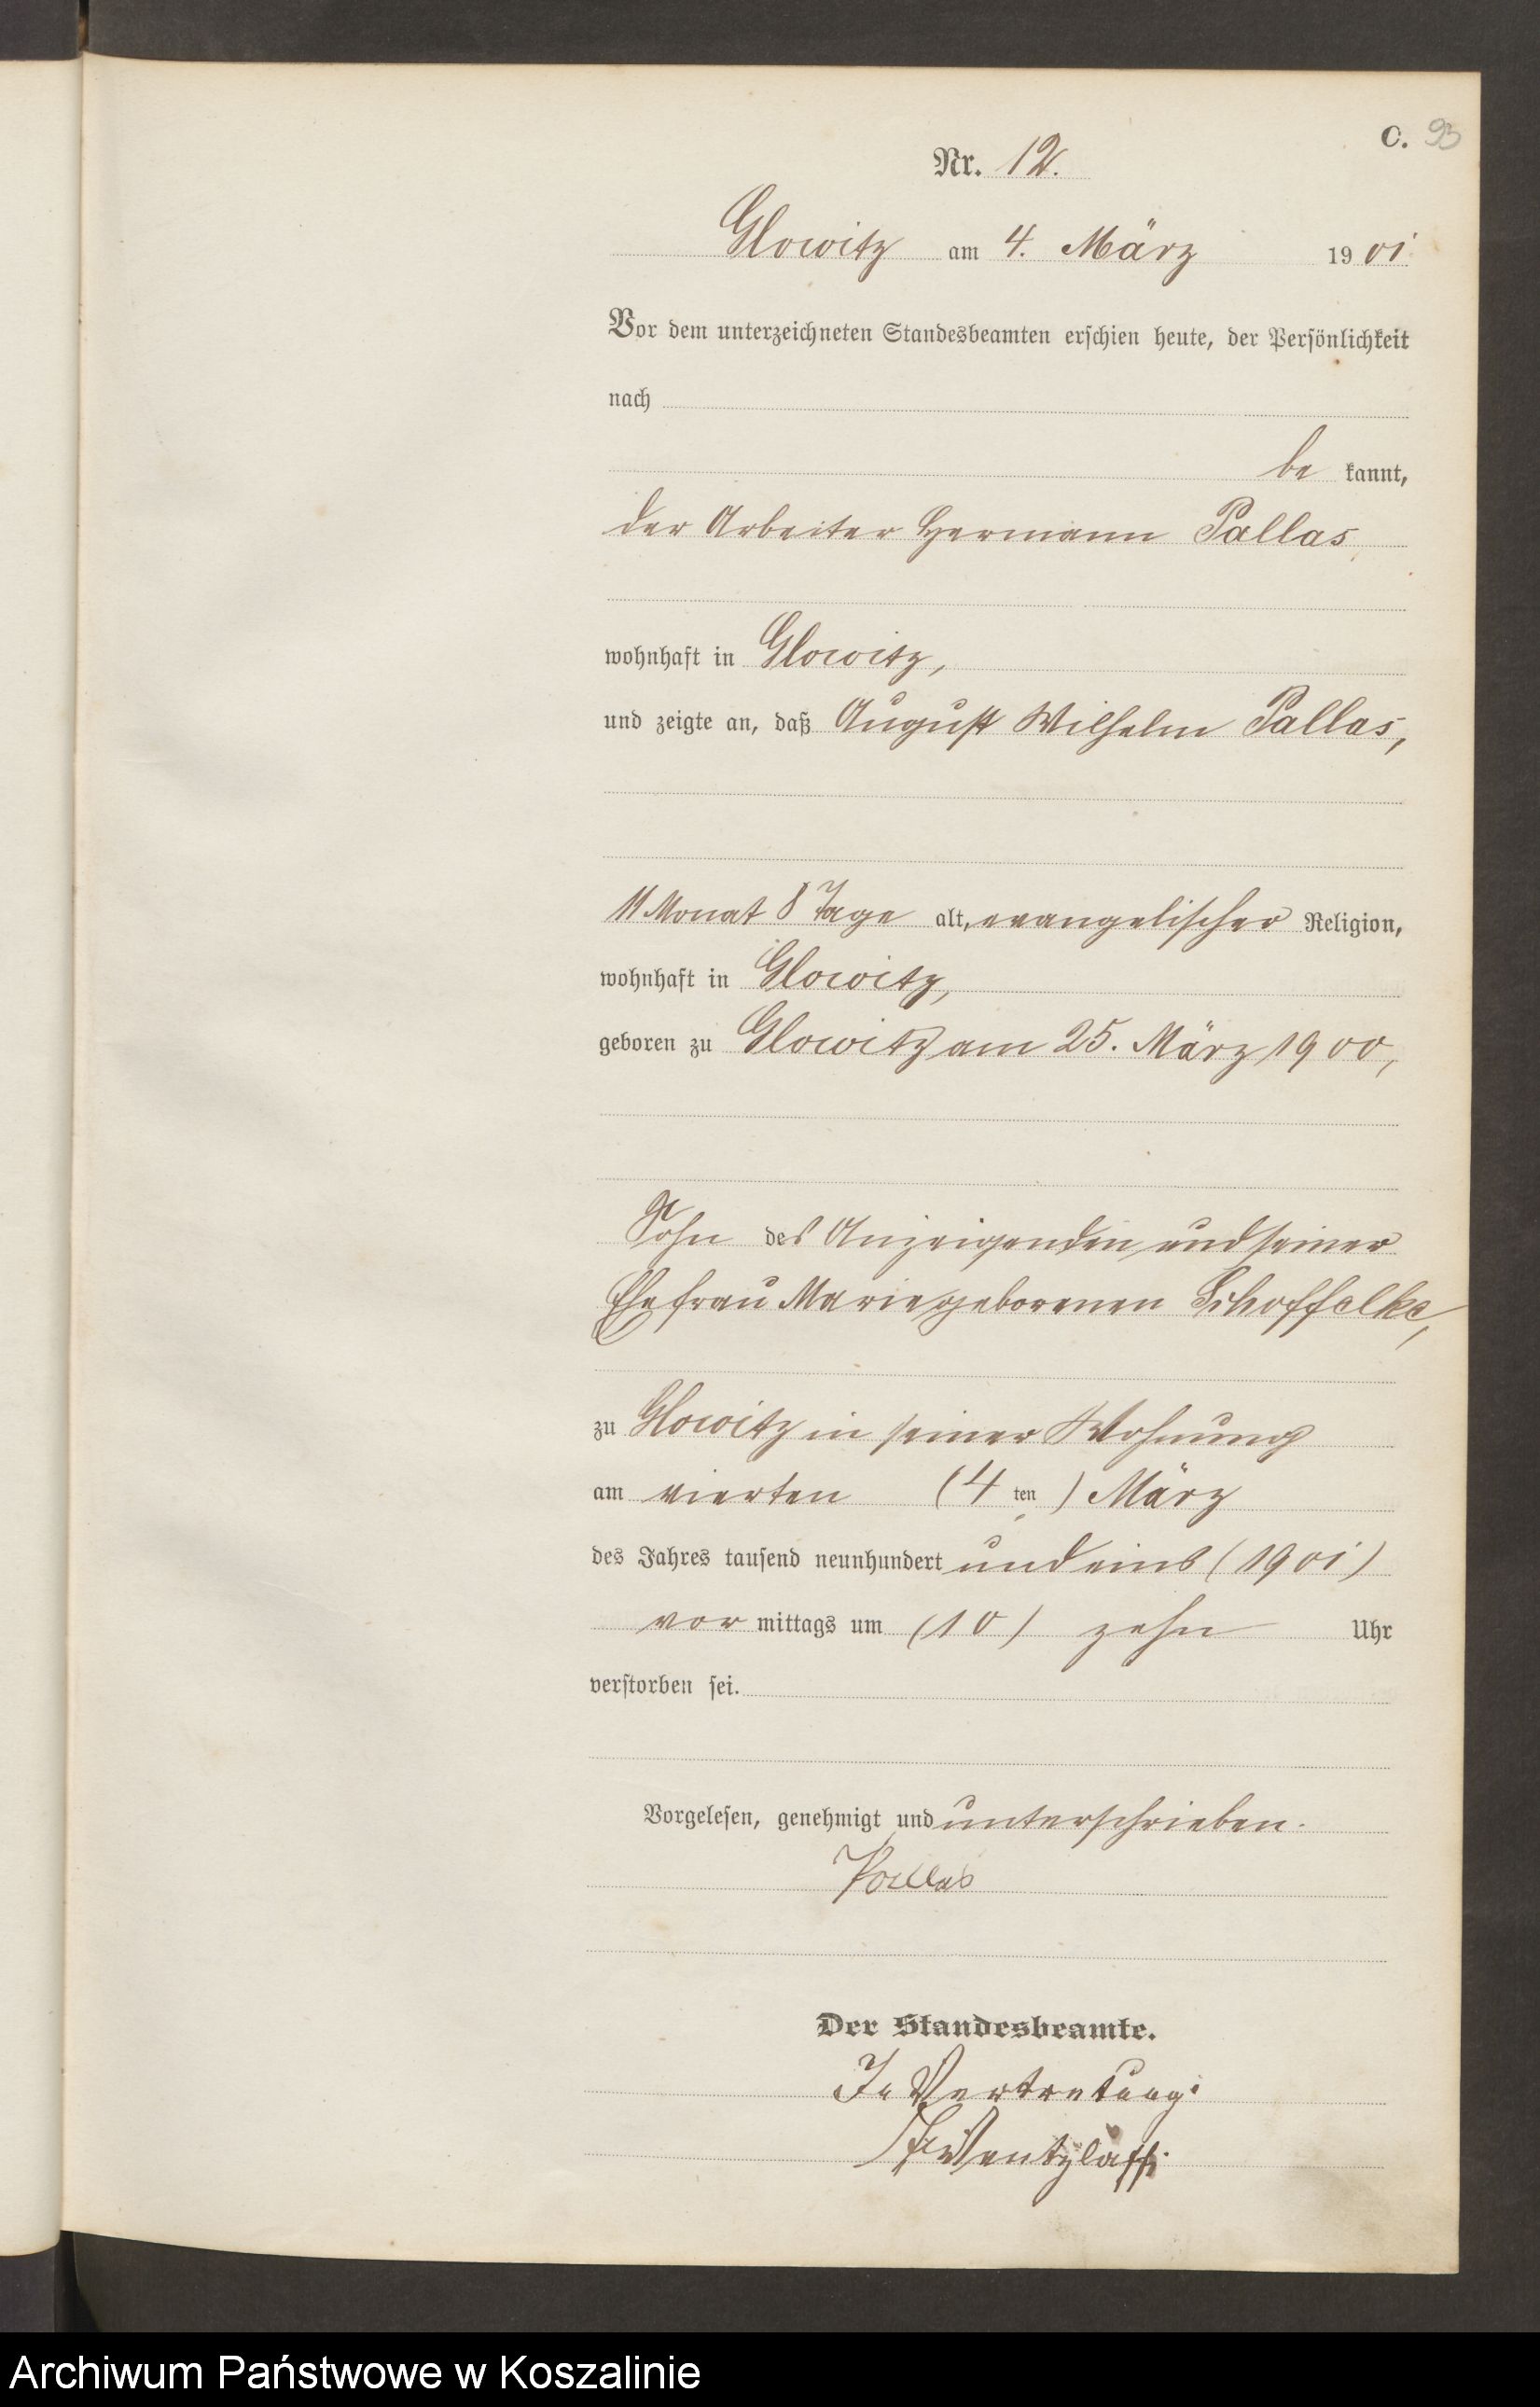 C. 93
Nr. 12.
Glowitz am 4. März 1901
Vor dem unterzeichneten Standesbeamten erschien heute, der Persönlichkeit
nach
be kannt,
der Arbeiter Hermann Pallas
wohnhaft in Glowitz,
und zeigte an, daß August Wilhelm Pallas,
11 Monat 8 Tage alt, evangelischer Religion,
wohnhaft in Glowitz,
geboren zu Glowitz am 25. März 1900,
Sohn des Anzeigenden und seiner
Ehefrau Marie geborenen Schoffelke,
zu Glowitz in seiner Wohnung
am vierten (4 ten) März
des Jahres tausend neunhundert und eins (1901)
vor mittags um (10) zehn Uhr
verstorben sei.
Vorgelesen, genehmigt und unterschrieben.
Pallas
Der Standesbeamte.
In Vertretung:
Wentzlaff.
Archiwum Państwowe w Koszalinie